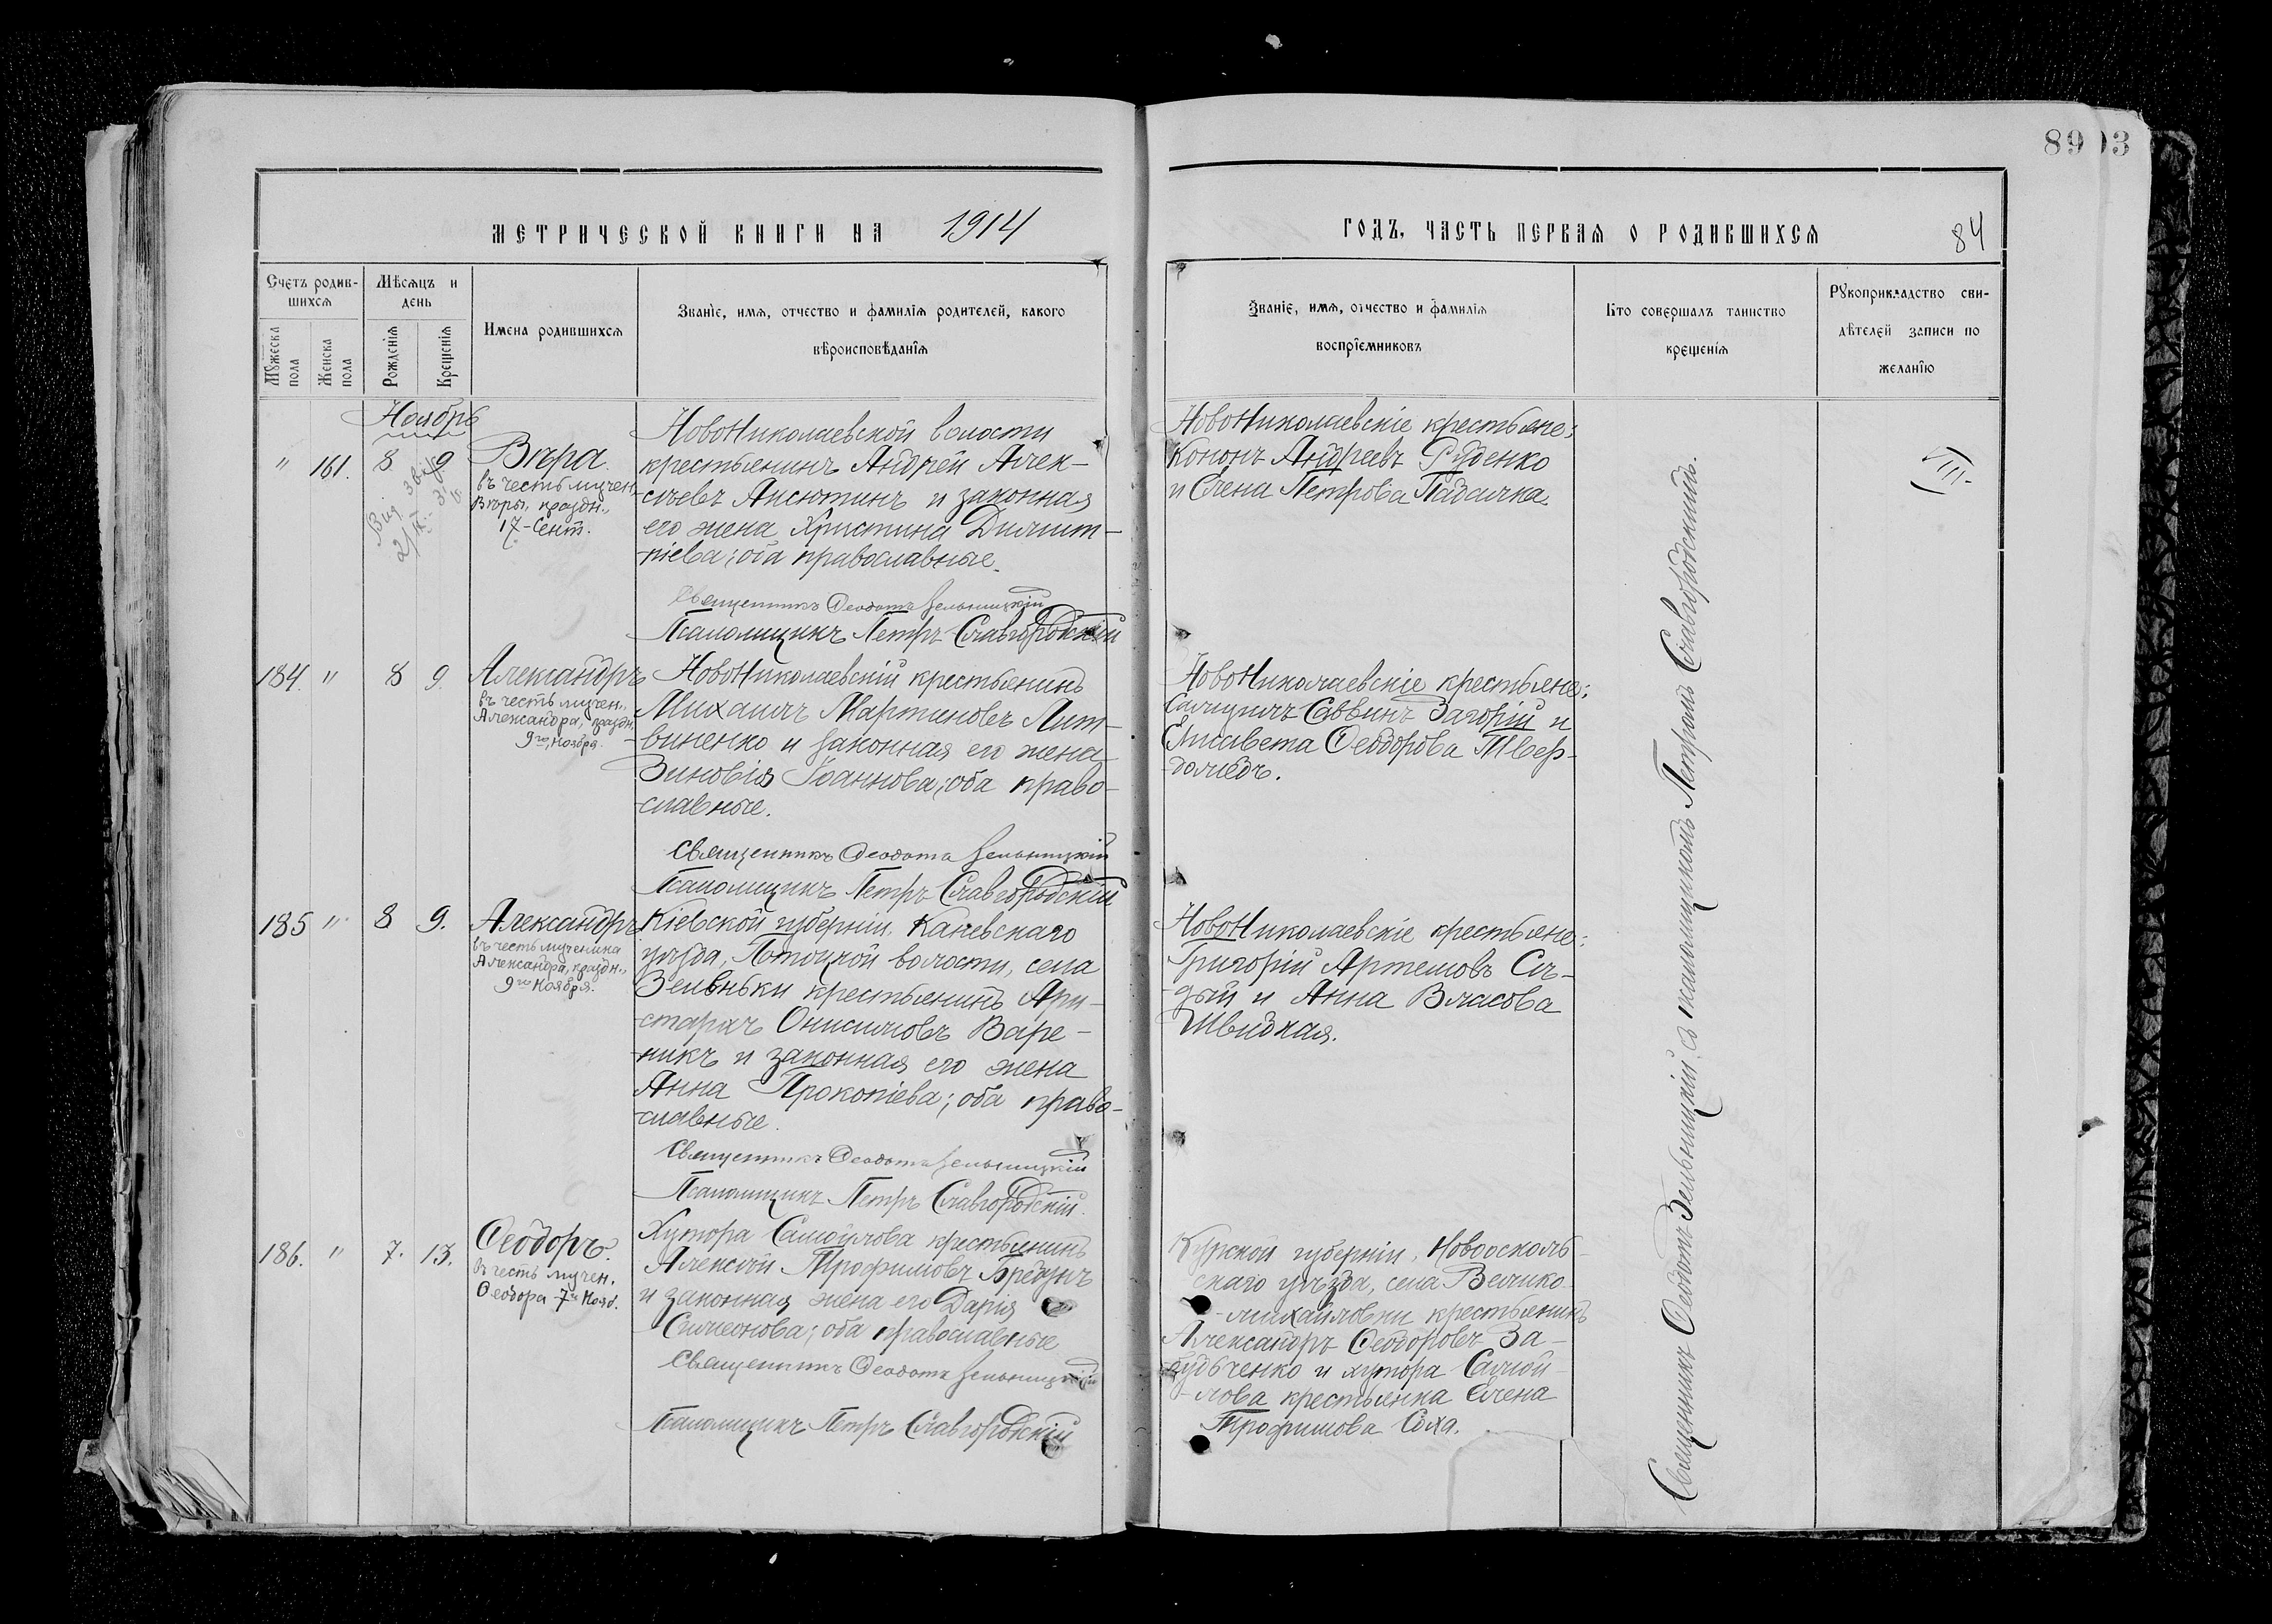 8903
МЕТРИЧЕСКОЙ КНИГИ НА 1914
ГОДЪ, ЧАСТЬ ПЕРВАЯ О РОДИВШИХСЯ
84
Счетъ родив-
шихся
Мужеска
пола
Женска
пола
Мѣсяцъ и
день
Рожденія
Крещенія
Имена родившихся
Званіе, имя, отчество и фамилія родителей, какого
вѣроисповѣданія
Званіе, имя, отчество и фамилія
воспріемниковъ
Кто совершалъ таинство
крещенія
Рукоприкладство сви-
дѣтелей записи по
желанію
Ноябрь
" 161. 8 9
Вѣра.
въ честь мучен.
Вѣры, праздн.,
17-Сент.
НовоНиколаевской волости
крестьянинъ Андрей Алек-
сѣевъ Аксютинъ и законная
его жена Христина Димит-
ріева; оба православные.
Священникъ Ѳеодотъ Зельницкій
Псаломщикъ Петръ Славгородскій
НовоНиколаевскіе крестьяне:
Кононъ Андреевъ Руденко
и Елена Петрова Падалка.
184. " 8 9.
Александръ
въ честь мучен.,
Александра, праздн.
9го Ноября.
НовоНиколаевскій крестьянинъ
Михаилъ Мартиновъ Лит-
виненко и законная его жена
Зиновія Іоаннова; оба право-
славные.
Священникъ Ѳеодотъ Зельницкій
Псаломщикъ Петръ Славгородскій
НовоНиколаевскіе крестьяне:
Самуилъ Саввинъ Загорій и
Елисавета Ѳеодорова Твер-
дохлѣбъ.
185 " 8 9.
Александръ
въ честь мученика
Александра, праздн.,
9го Ноября.
Кіевской губерніи, Каневскаго
уѣзда, Потоцкой волости, села
Зеленьки крестьянинъ Ари-
стархъ Онисимовъ Варе-
никъ и законная его жена
Анна Прокопіева; оба право-
славные.
Священникъ Ѳеодотъ Зельницкій
Псаломщикъ Петръ Славгородскій.
НовоНиколаевскіе крестьяне:
Григорій Артемовъ Сѣ-
дый и Анна Власова
Швидкая.
186. " 7. 13.
Ѳеодоръ.
въ честь мучен.
Ѳеодора 7го Нояб.
Хутора Самойлова крестьянинъ
Алексѣй Трофимовъ
и законная жена его Дарія
Симеонова; оба православные
Священникъ Ѳеодотъ Зельницкій
Псаломщикъ Петръ Славгородскій
Курской губерніи, Новоосколь-
скаго уѣзда, села Велико-
михайловки крестьянинъ
Александръ Ѳеодоровъ
и хутора Самой-
лова крестьянка Елена
Трофимова Соха.
Священникъ Ѳеодотъ Зельницкій съ псаломщикомъ Петромъ Славгородскимъ.